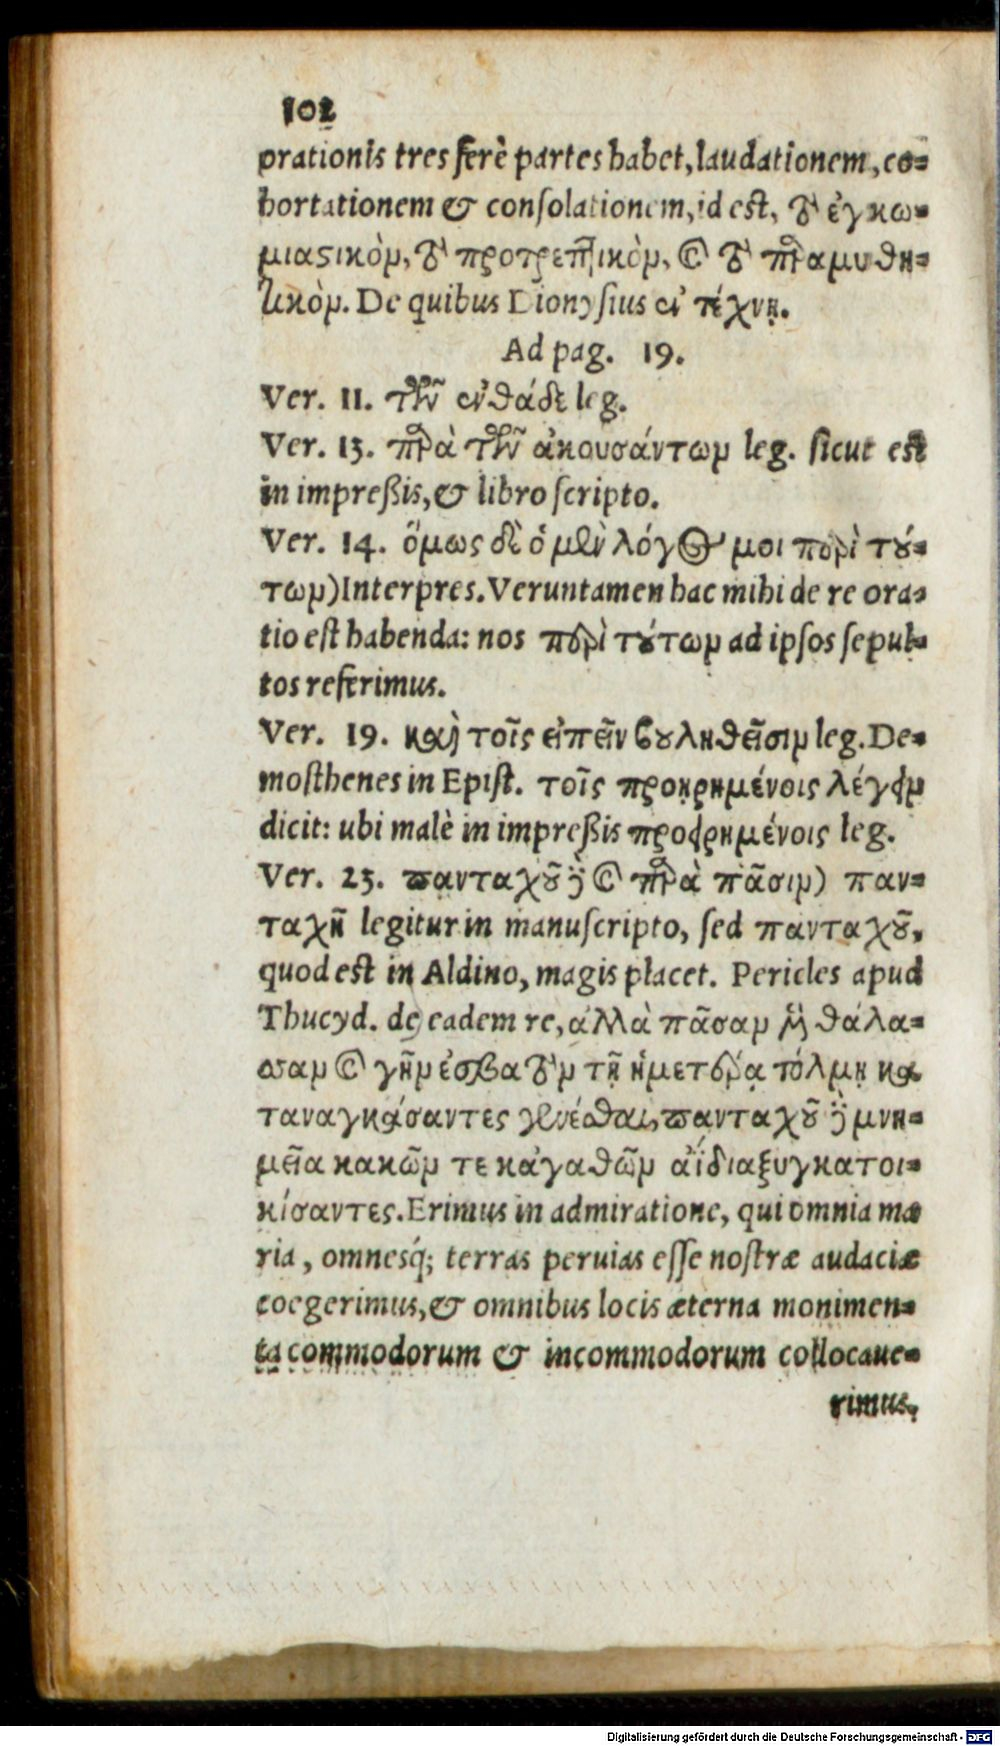 102
orationis tres ferè partes habet, laudationem, co-
hortationem & consolationem, id est, τὸ ἐγκω-
μιαστικὸν, τὸ προτρεπτικὸν, καὶ τὸ παραμυθη-
τικὸν. De quibus Dionysius ἐν τέχνῃ.
Ad pag. 19.
Ver. 11. τῶν ἐνθάδε leg.
Ver. 13. παρὰ τῶν ἀκουσάντων leg. sicut est
in impreßis, & libro scripto.
Ver. 14. ὅμως δὲ ὁ μὲν λόγος μοι περὶ τού-
των) Interpres. Veruntamen hac mihi de re ora-
tio est habenda: nos περὶ τούτων ad ipsos sepul-
tos referimus.
Ver. 19. καὶ τοῖς εἰπεῖν βουληθεῖσιν leg. De-
mosthenes in Epist. τοῖς προῃρημένοις λέγειν
dicit: ubi malè in impreßis προειρημένοις leg.
Ver. 23. πανταχοῦ δὲ καὶ παρὰ πᾶσιν) παν-
ταχῆ legitur in manuscripto, sed πανταχοῦ,
quod est in Aldino, magis placet. Pericles apud
Thucyd. de eadem re, ἀλλὰ πᾶσαν μὲν θάλα-
σσαν καὶ γῆν ἐσβατὸν τῇ ἡμετέρᾳ τόλμῃ κα
ταναγκάσαντες γενέσθαι, πανταχοῦ δὲ μνη-
μεῖα κακῶν τε κἀγαθῶν ἀΐδια ξυγκατοι-
κίσαντες. Erimus in admiratione, qui omnia ma
ria, omnesq́; terras peruias esse nostræ audaciæ
coegerimus, & omnibus locis æterna monimen-
ta commodorum & incommodorum collocaue-
rimus.
Digitalisierung gefördert durch die Deutsche Forschungsgemeinschaft - DFG